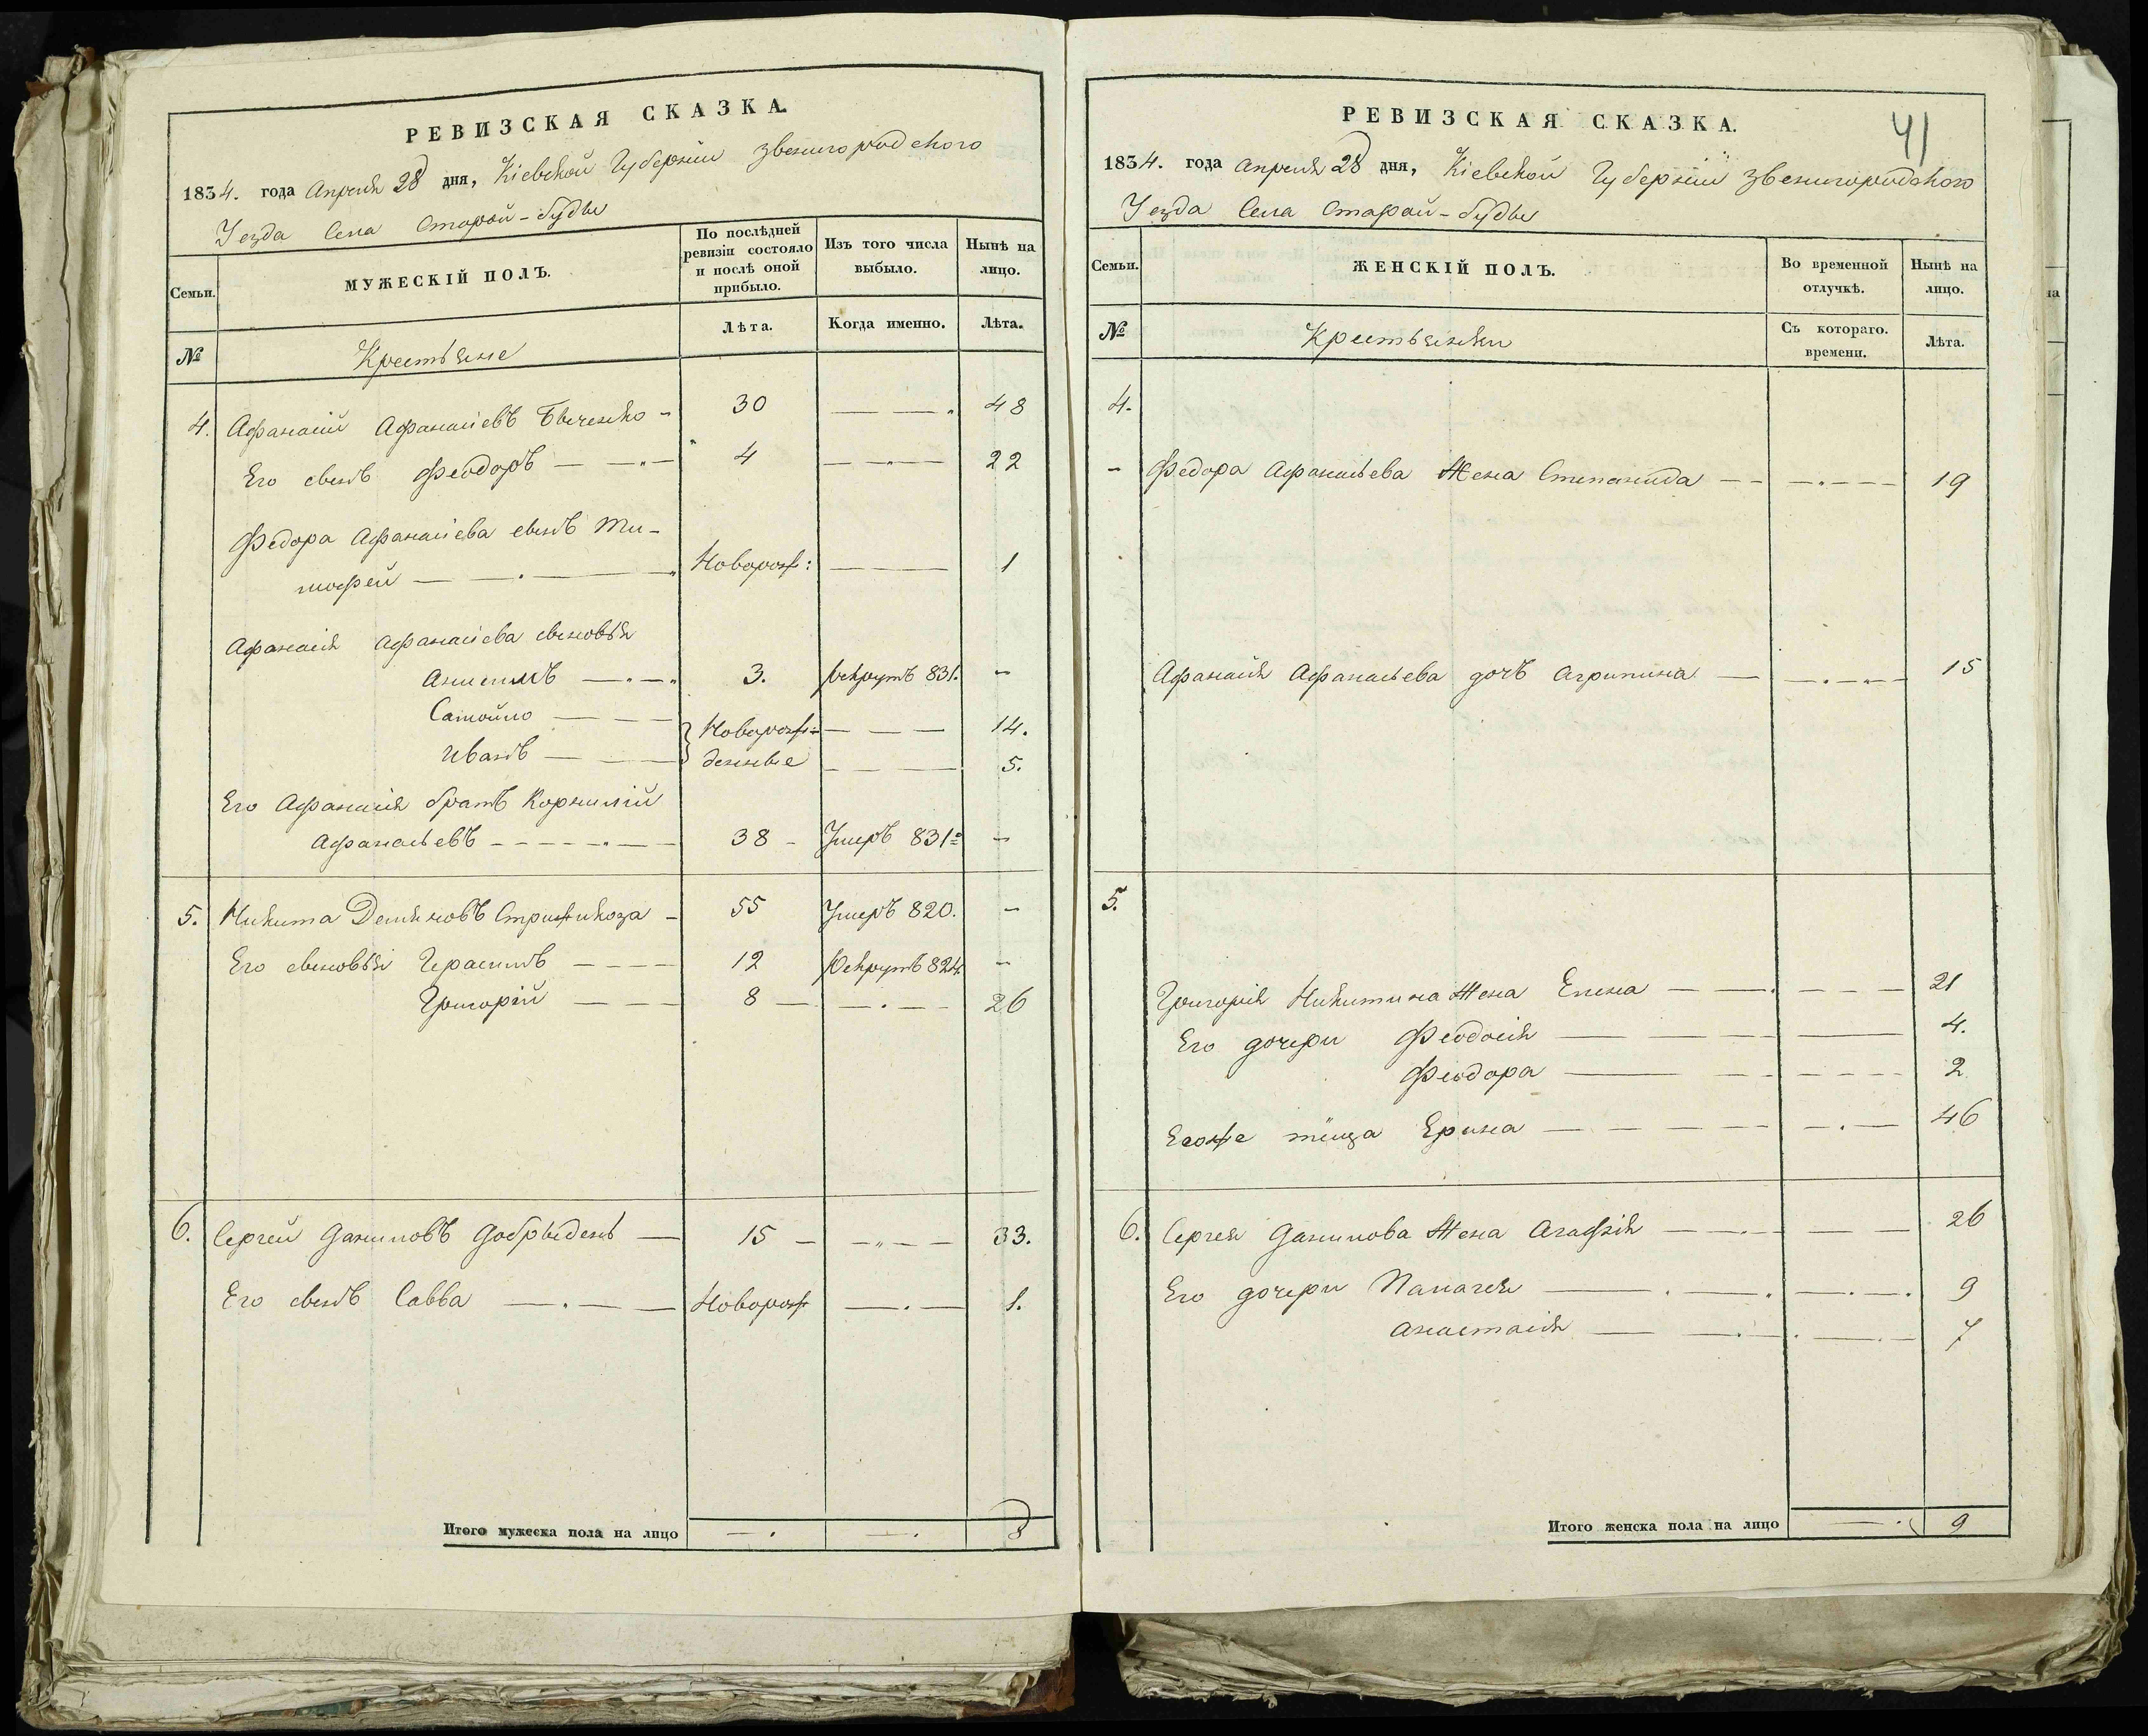 РЕВИЗСКАЯ СКАЗКА.
1834. года Апреля 28 дня, Кіевской Губерніи Звенигородского
Уезда Села Старой-Буды
Семьи.
МУЖЕСКІЙ ПОЛЪ.
По послѣдней ревизіи состояло и послѣ оной прибыло.
Изъ того числа выбыло.
Нынѣ на лицо.
№
Крестьяне
Лѣта.
Когда именно.
Лѣта.
4. Афанасій Афанасіевъ 30 — — 48
Его сынъ Феодоръ — — 4 — — 22
Федора Афанасіева сынъ Ти-
мофей — — Новорож: — — 1
Афанасія Афанасіева сыновья
Анисимъ — — 3. рекрутъ 831. —
Самойло — — Новорож= — — 14.
Иванъ — — денные — — 5.
Его Афанасія братъ Корнилій
Афанасьевъ — — 38 — Умеръ 831= —
5. Никита Демяновъ Стрижикоза — 55 Умеръ 820. —
Его сыновья Герасимъ — — 12 Рекрутъ 824. —
Григорій — — 8 — — 26
6. Сергей Даниловъ Добрыдень — 15 — — 33.
Его сынъ Савва — — Новорож — — 1.
Итого мужеска пола на лицо — — 8
РЕВИЗСКАЯ СКАЗКА.
41
1834. года Апреля 28 дня, Кіевской Губерніи Звенигородского
Уезда Села Старай-Буды
Семьи.
ЖЕНСКІЙ ПОЛЪ.
Во временной отлучкѣ.
Нынѣ на лицо.
№
Крестьянки
Съ котораго. времени.
Лѣта.
4.
- Федора Афанасьева Жена Степанида — — 19
Афанасія Афанасьева дочъ Агрипина — — 15
5.
Григорія Никитина Жена Елена — — 21
Его дочери Феодосія — — 4.
Феодора — — 2
Егоже тіоща Ерина — — 46
6. Сергея Данилова Жена Агафія — — 26
Его дочери Палагея — — 9
Анастасія — — 7
Итого женска пола на лицо — 9